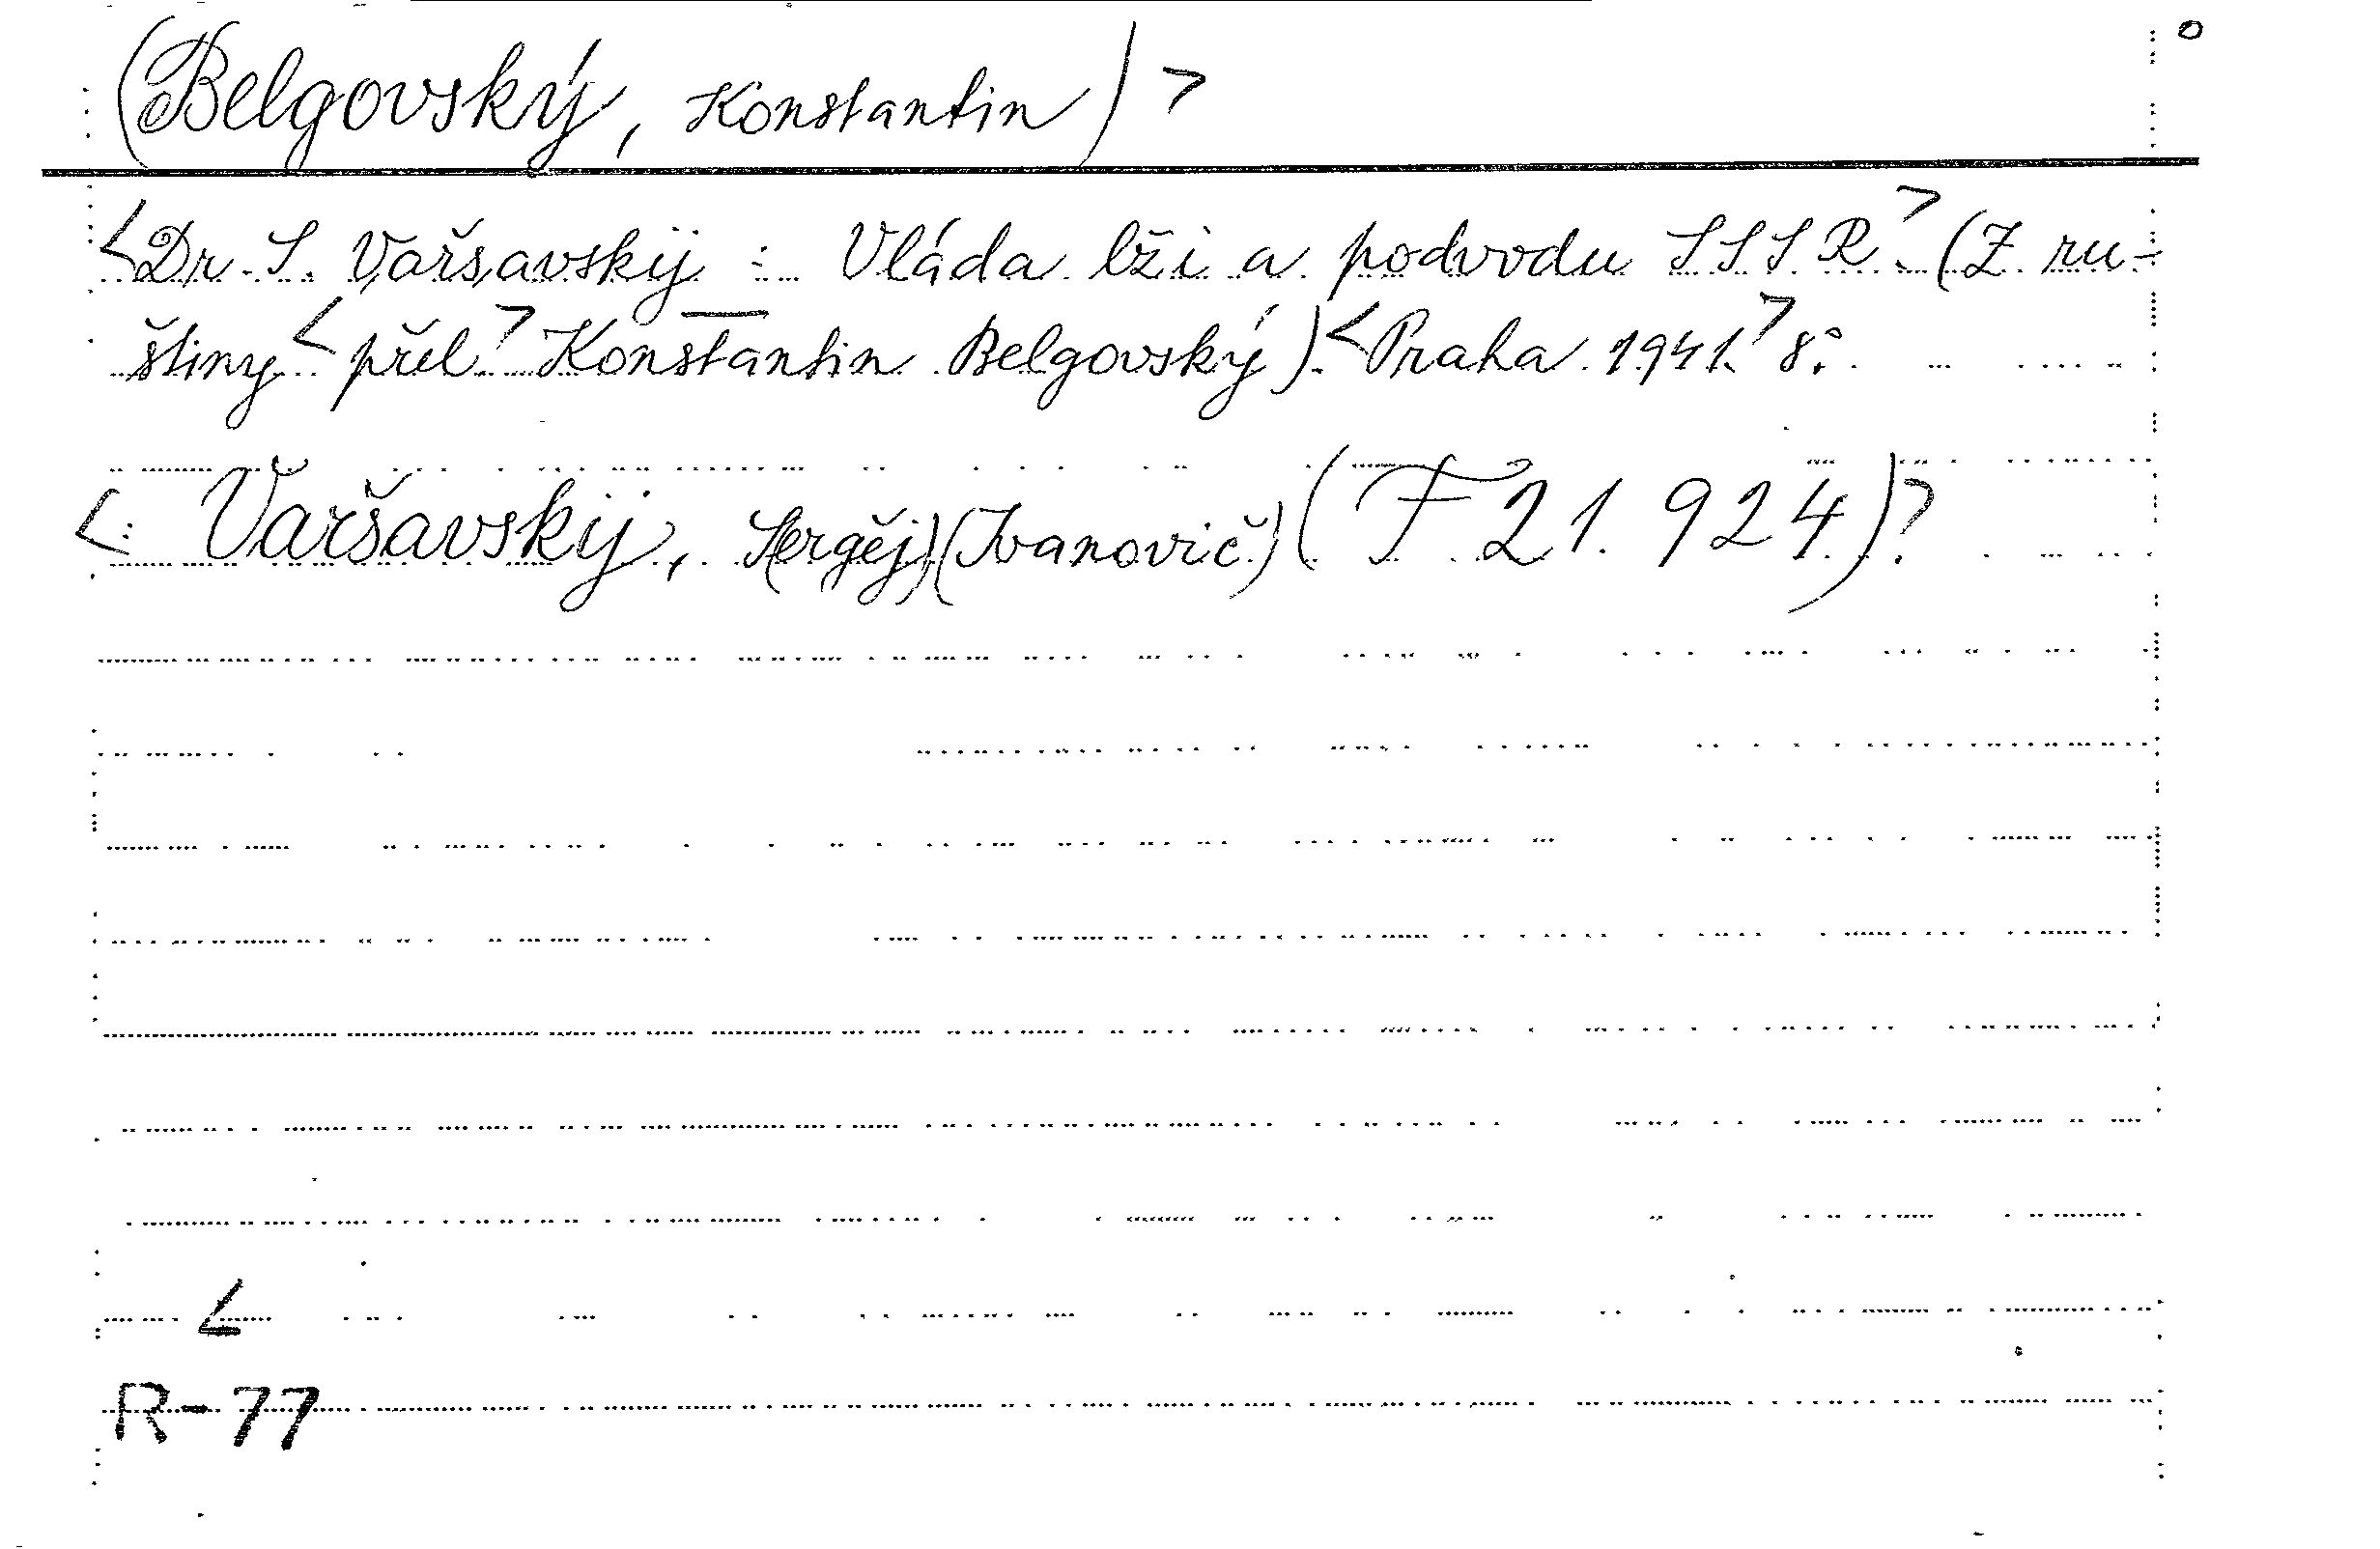 (Belgovský, Konstantin) >
<Dr. S. Varšavskij : Vláda lži a podvodu SSSR.> (Z ru-
štiny <přel.> Konstantin Belgovský). <Praha 1941.> 8°.
< Varšavskij, S(ergěj) (Ivanovič) (F 21.924)?
<
R-77